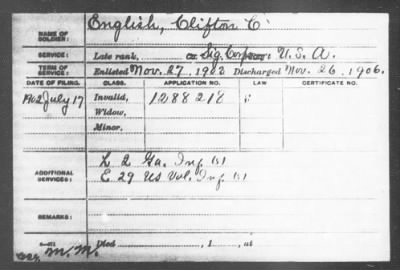 NAME OF SOLDIER: English, Clifton C.
SERVICE: Late rank, Co. Sig. Corps U.S.A.
TERM OF SERVICE: Enlisted Nov. 27, 1903 Discharged Nov. 26, 1906.
DATE OF FILING. CLASS. APPLICATION NO. LAW CERTIFICATE NO.
July 17 Invalid, 1288218
Widow,
Minor,
ADDITIONAL SERVICES: L 2 Ga. Inf.
E 29 US Vol. Inf.
REMARKS:
Died , 1 , at
M.M.